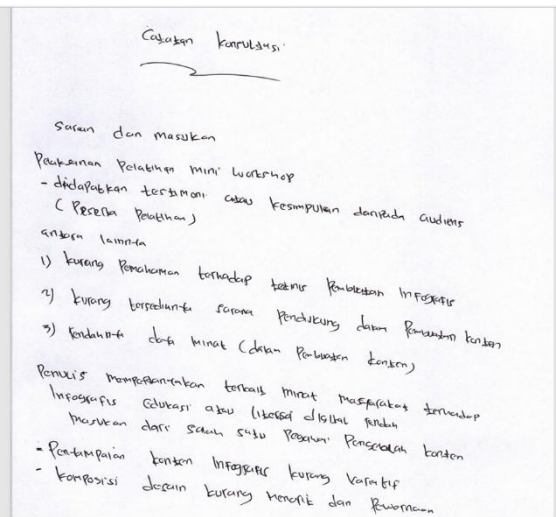 Catatan Konsultasi
Saran dan masukan
Pelatihan mini workshop
- didapatkan testimoni atau kesimpulan daripada audiens
( Peserta Pelatihan )
antara lainnya
1) kurang Pemahaman terhadap teknis Pembuatan Infografis
2) kurang tersedianya sarana Pendukung dalam konten
3) rendahnya daya minat (dalam Pembuatan konten)
Penulis terkait minat masyarakat terhadap
Infografis Edukasi atau literasi digital rendah
masukan dari salah satu Pegawai Pengelola konten
- Penyampaian konten Infografis kurang Variatif
- komposisi desain kurang menarik dan Pewarnaan